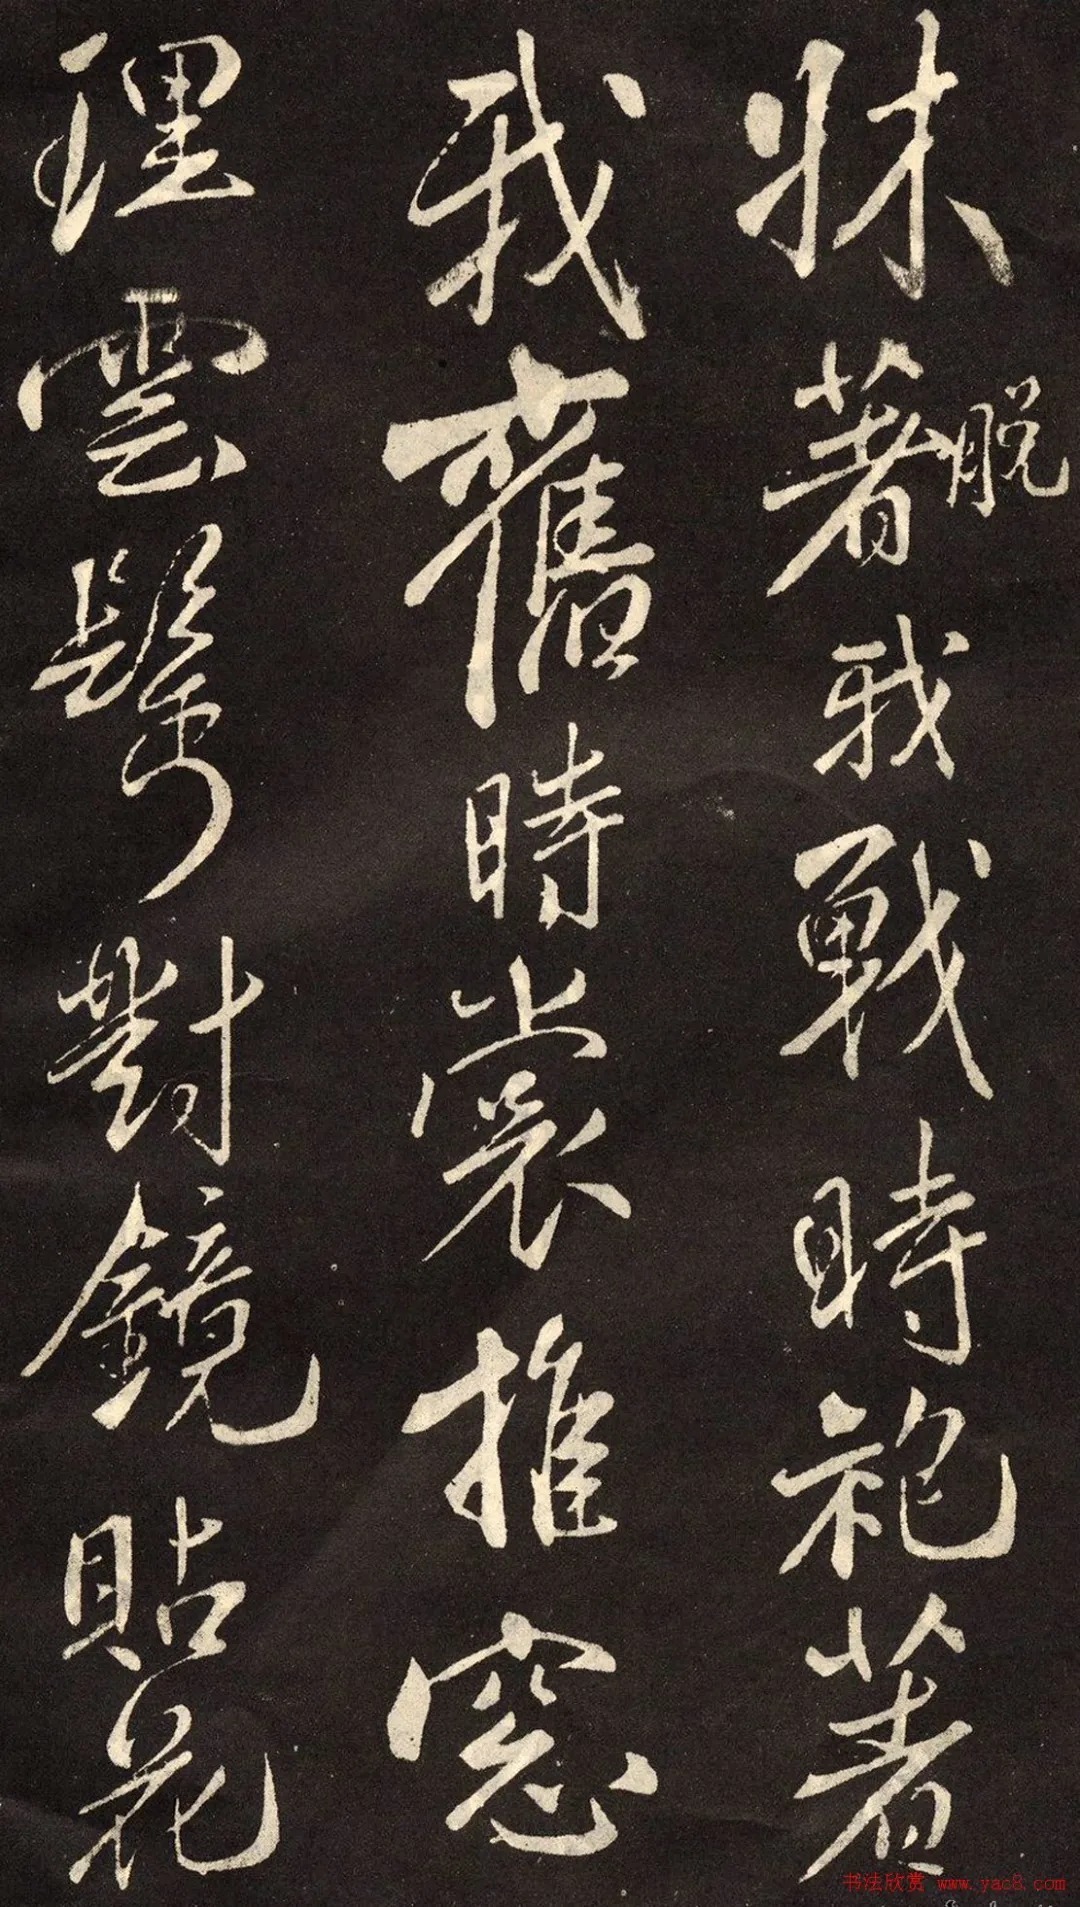 牀著脱我戰時袍著
我舊時裳推窓
理雲鬢對鏡貼花
书法欣赏 www.yac8.com